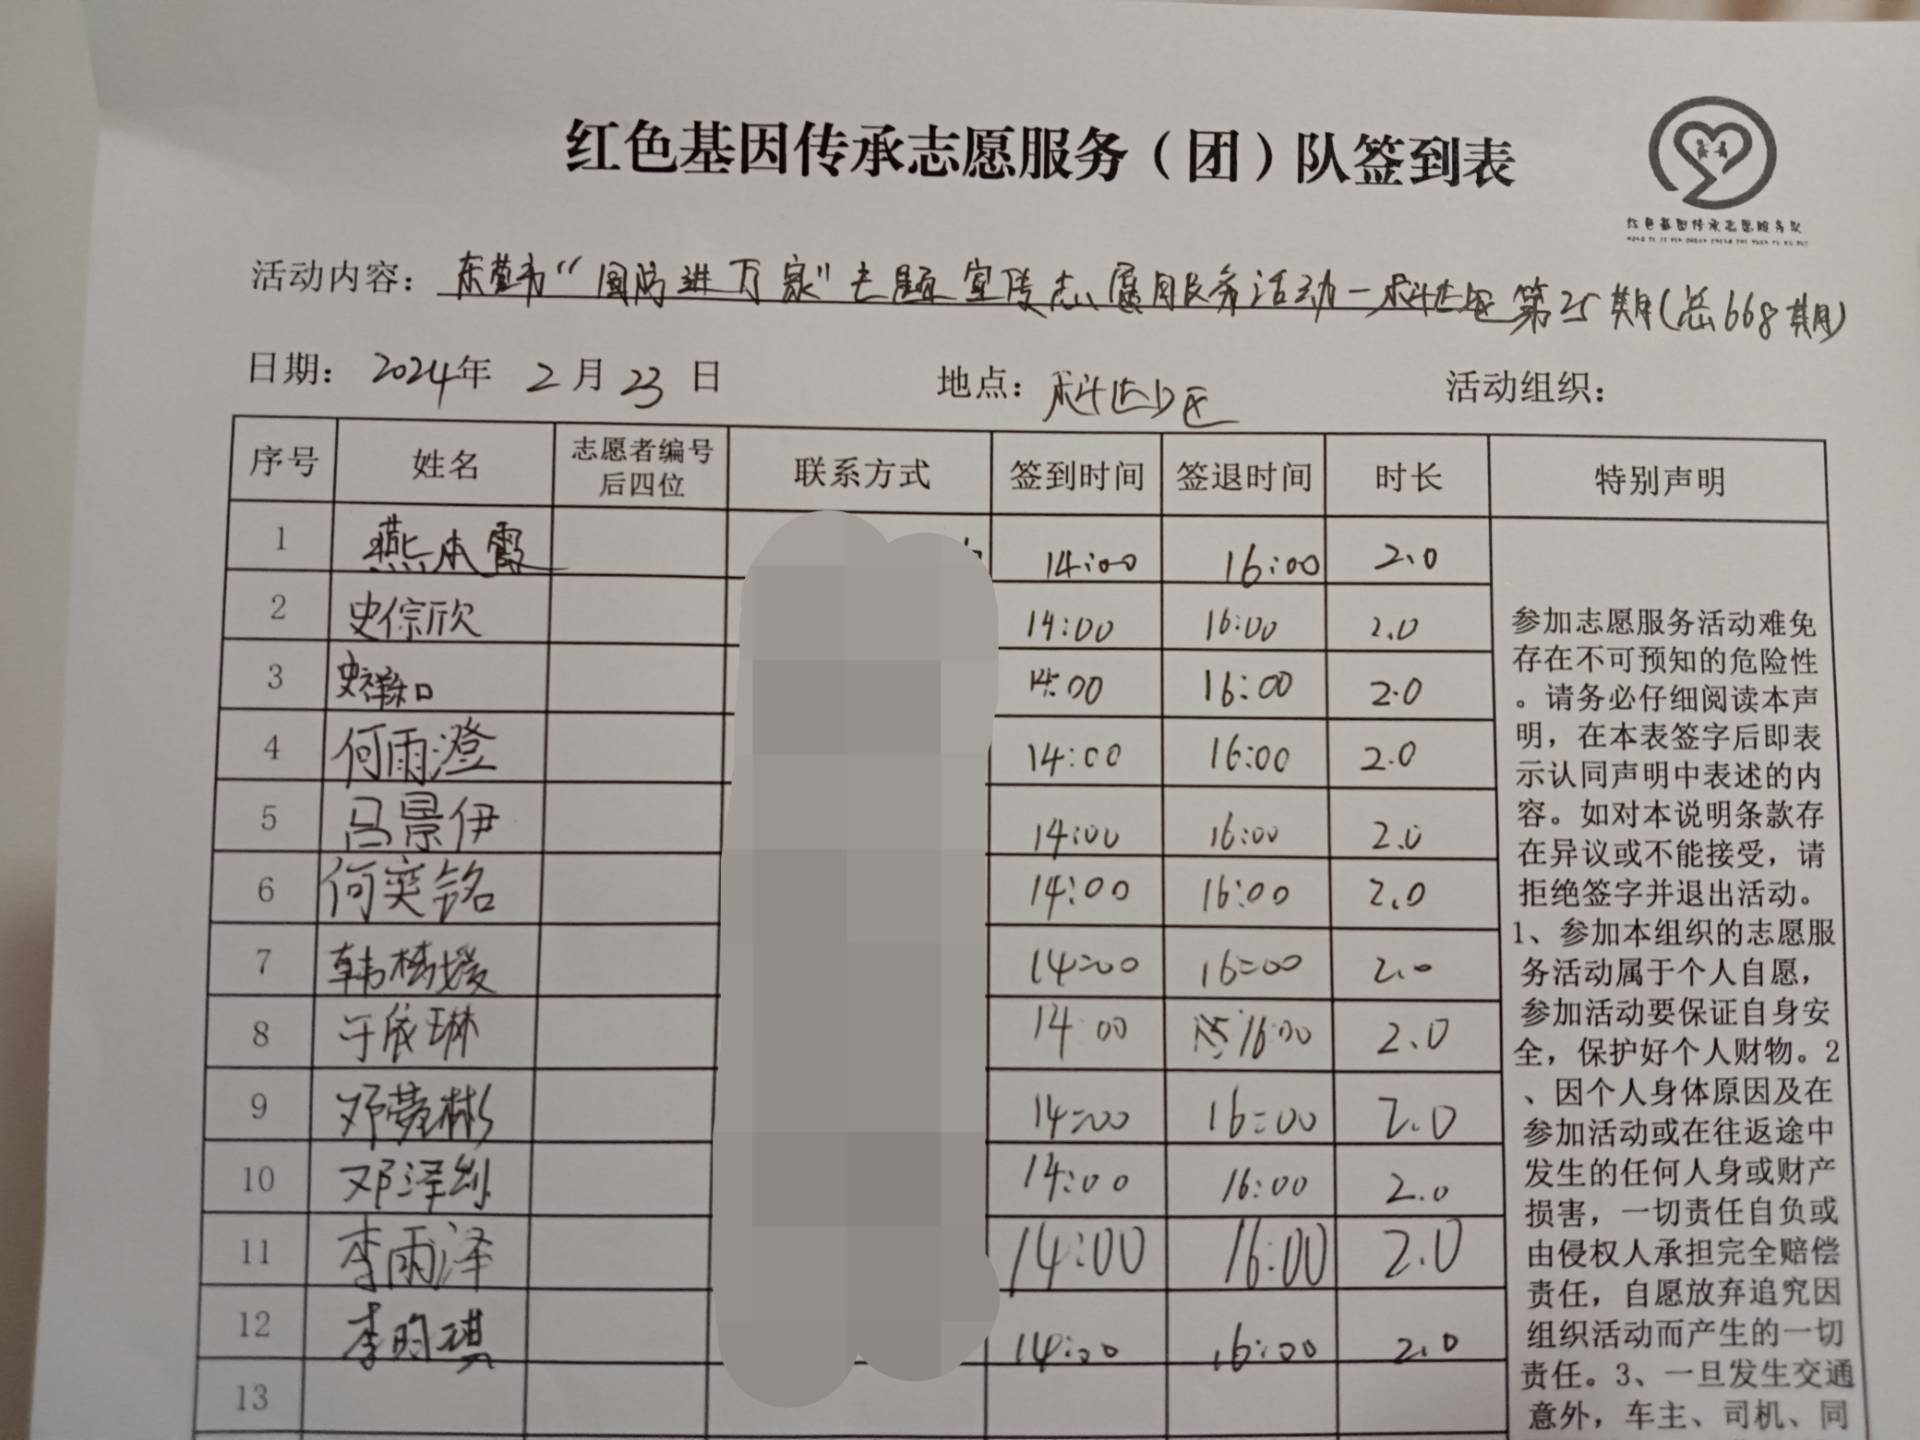 红色基因传承志愿服务（团）队签到表
红色基因传承志愿服务队
活动内容：东莞市“国防进万家”主题宣传志愿服务活动一科达社区第25期(总668期)
日期：2024年2月23日 地点： 活动组织：
序号 姓名 志愿者编号后四位 联系方式 签到时间 签退时间 时长 特别声明
1 燕本霞 14:00 16:00 2.0
2 史倧欣 14:00 16:00 2.0
3 史祥和 14:00 16:00 2.0
4 何雨澄 14:00 16:00 2.0
5 吕景伊 14:00 16:00 2.0
6 何奕铭 14:00 16:00 2.0
7 韩 14:00 16:00 2.0
8 于依琳 14:00 16:00 2.0
9 邓梦彬 14:00 16:00 2.0
10 邓泽 14:00 16:00 2.0
11 李雨泽 14:00 16:00 2.0
12 李昀祺 14:00 16:00 2.0
13
参加志愿服务活动难免
存在不可预知的危险性
。请务必仔细阅读本声
明，在本表签字后即表
示认同声明中表述的内
容。如对本说明条款存
在异议或不能接受，请
拒绝签字并退出活动。
1、参加本组织的志愿服
务活动属于个人自愿，
参加活动要保证自身安
全，保护好个人财物。2
、因个人身体原因及在
参加活动或在往返途中
发生的任何人身或财产
损害，一切责任自负或
由侵权人承担完全赔偿
责任，自愿放弃追究因
组织活动而产生的一切
责任。3、一旦发生交通
意外，车主、司机、同